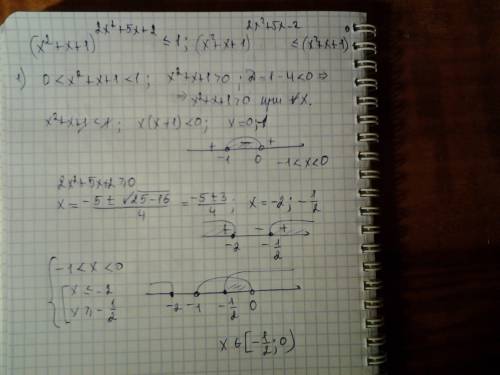 (x²+x+1)^{2x²+5x+2} ≤ 1; (x²+x+1)^{2x²+5x-2} ≤ (x²+x+1)^0
1) 0 < x²+x+1 < 1; x²+x+1 > 0; D=1-4<0 ⇒
⇒ x²+x+1>0 при ∀x.
x²+x+1<1; x(x+1)<0; x=0;-1
+ − +
-1 0 -1<x<0
2x²+5x+2≥0
x = (-5 ± √25-16)/4 = (-5±3)/4; x=-2; -1/2
+ − +
-2 -1/2
{ -1<x<0
[ x ≤ -2
x ≥ -1/2
-2 -1 -1/2 0
x ∈ [-1/2; 0)